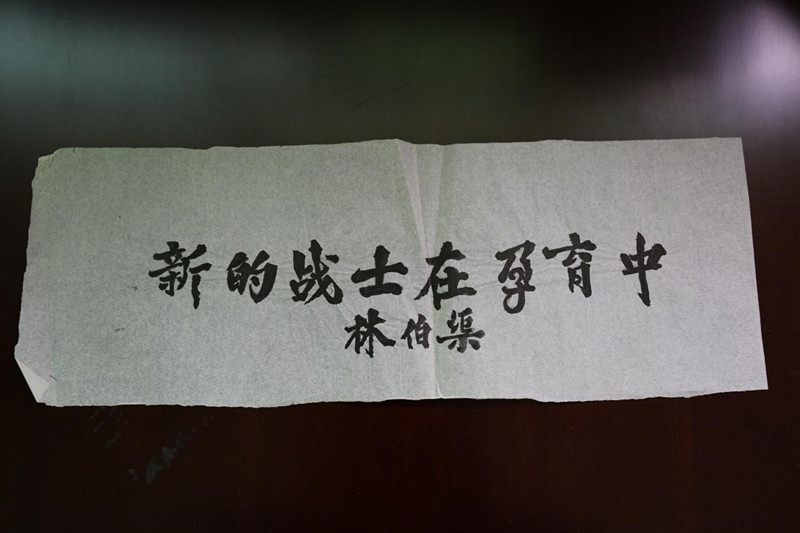 新的战士在孕育中
林伯渠